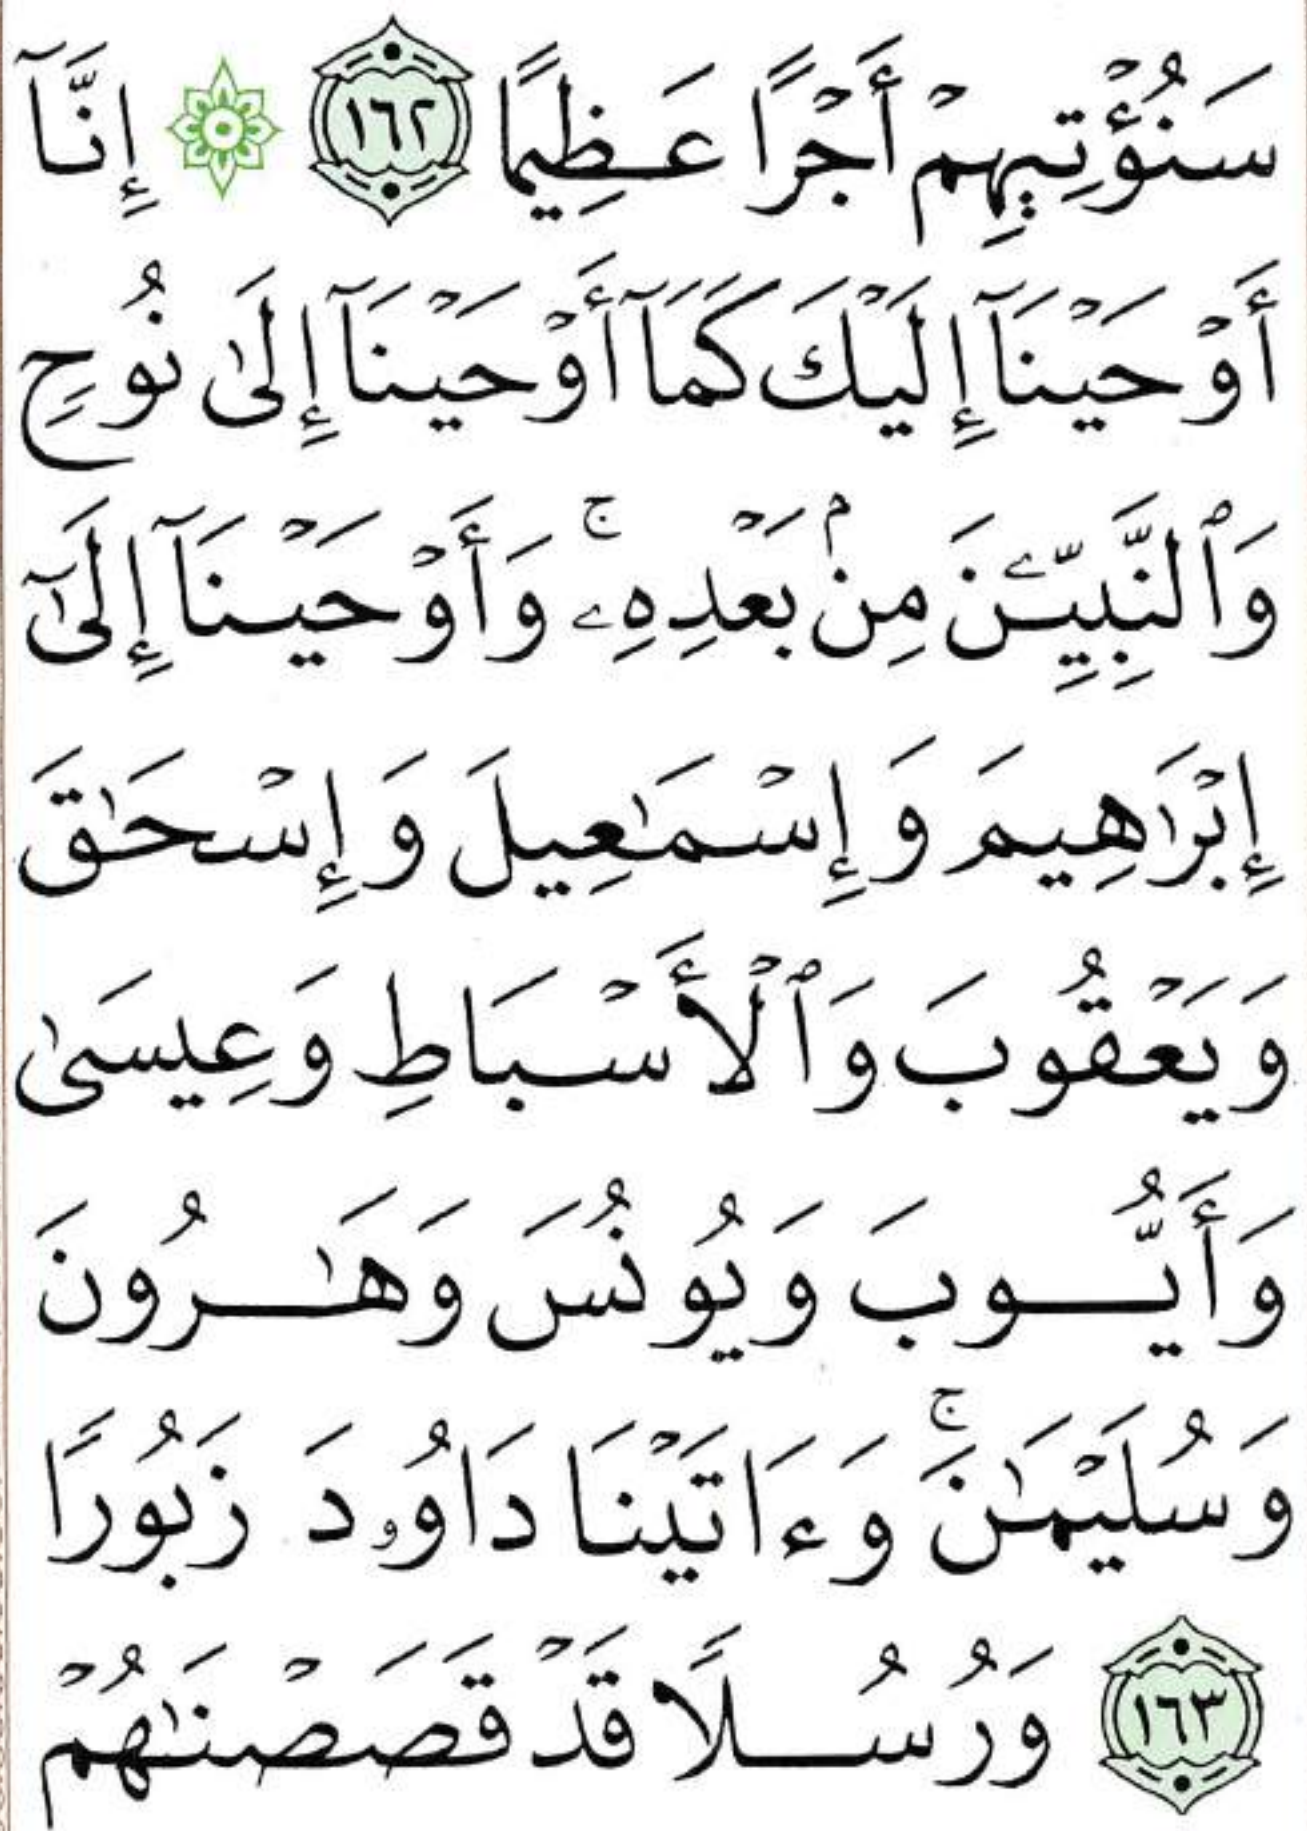 سَنُؤۡتِيهِمۡ أَجۡرًا عَظِيمًا ١٦٢ ۞ إِنَّآ
أَوۡحَيۡنَآ إِلَيۡكَ كَمَآ أَوۡحَيۡنَآ إِلَىٰ نُوحٖ
وَٱلنَّبِيِّـۧنَ مِنۢ بَعۡدِهِۦۚ وَأَوۡحَيۡنَآ إِلَىٰٓ
إِبۡرَٰهِيمَ وَإِسۡمَٰعِيلَ وَإِسۡحَٰقَ
وَيَعۡقُوبَ وَٱلۡأَسۡبَاطِ وَعِيسَىٰ
وَأَيُّوبَ وَيُونُسَ وَهَٰرُونَ
وَسُلَيۡمَٰنَۚ وَءَاتَيۡنَا دَاوُۥدَ زَبُورٗا
١٦٣ وَرُسُلٗا قَدۡ قَصَصۡنَٰهُمۡ